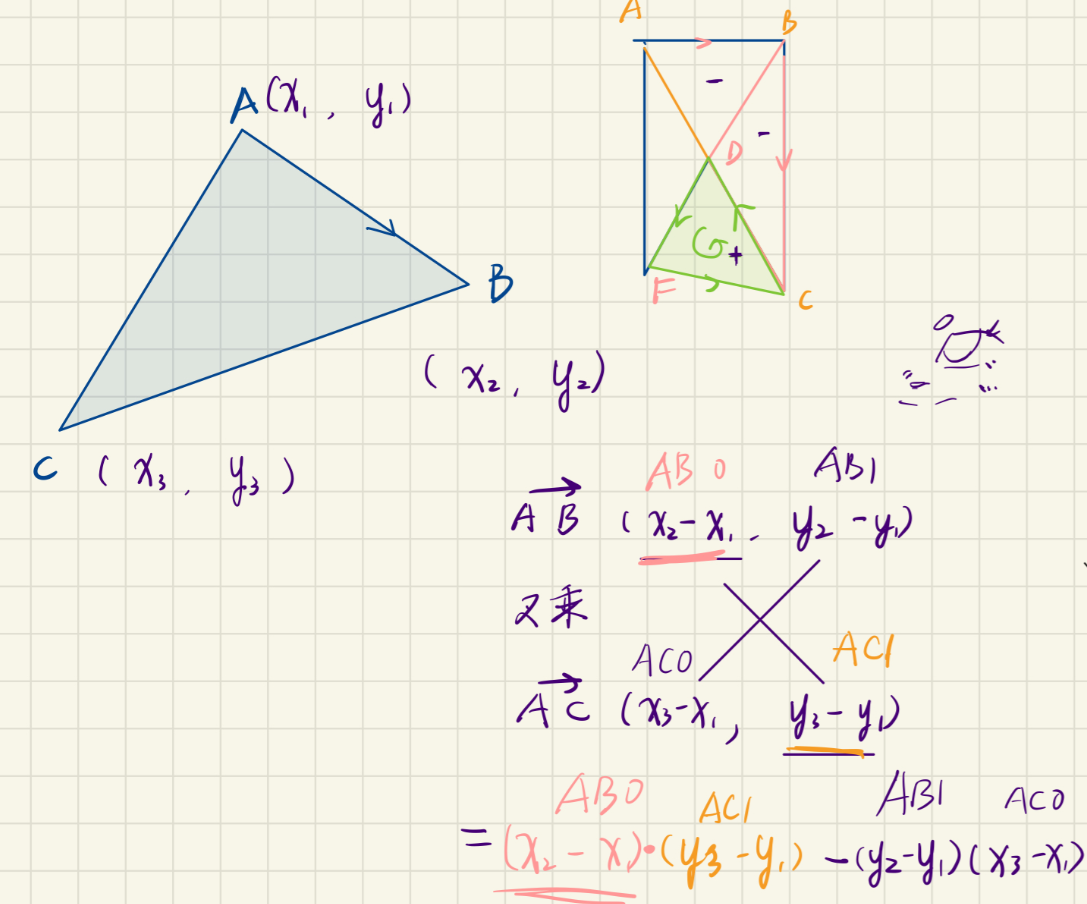 A B
A(x₁, y₁)
-
-
D
G +
B
F
C
(x₂, y₂)
C (x₃, y₃)
AB0 AB1
→AB (x₂-x₁, y₂-y₁)
叉乘
AC0 AC1
→AC (x₃-x₁, y₃-y₁)
AB0 AC1 AB1 AC0
= (x₂-x₁)·(y₃-y₁) -(y₂-y₁)(x₃-x₁)